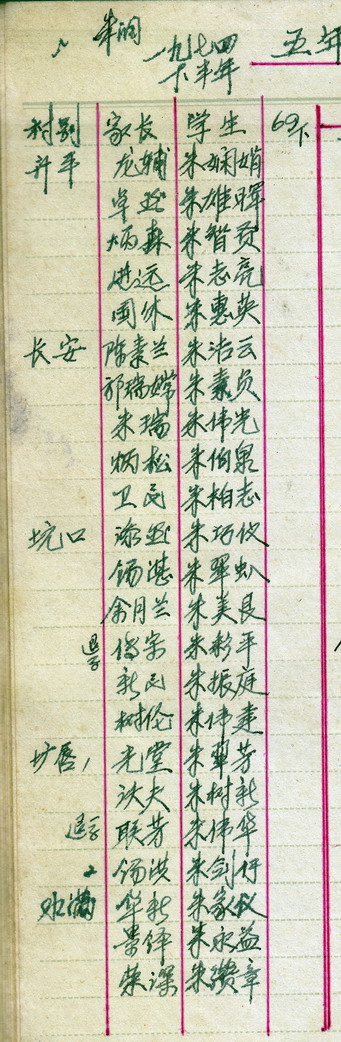 朱润
一九七四
下半年
五年
村别 家长 学生 69下
升平 龙辅 朱娴娟
卓 朱雄晖
炳森 朱智
进远 朱志亮
国休 朱惠英
长安 陈素兰 朱洁云
邓瑞嫦 朱素贞
朱瑞 朱伟光
炳松 朱伯泉
卫民 朱柏志
坑口 朱巧仪
锡湛 朱翠
余月兰 朱美良
退学 朱彩平
新民 朱振庭
树伦 朱伟建
圹唇 光堂 朱翠芳
夫 朱树新
退学 联芳 朱伟华
锡洪 朱剑行
华新 朱家仪
景 朱永益
荣深 朱缵章